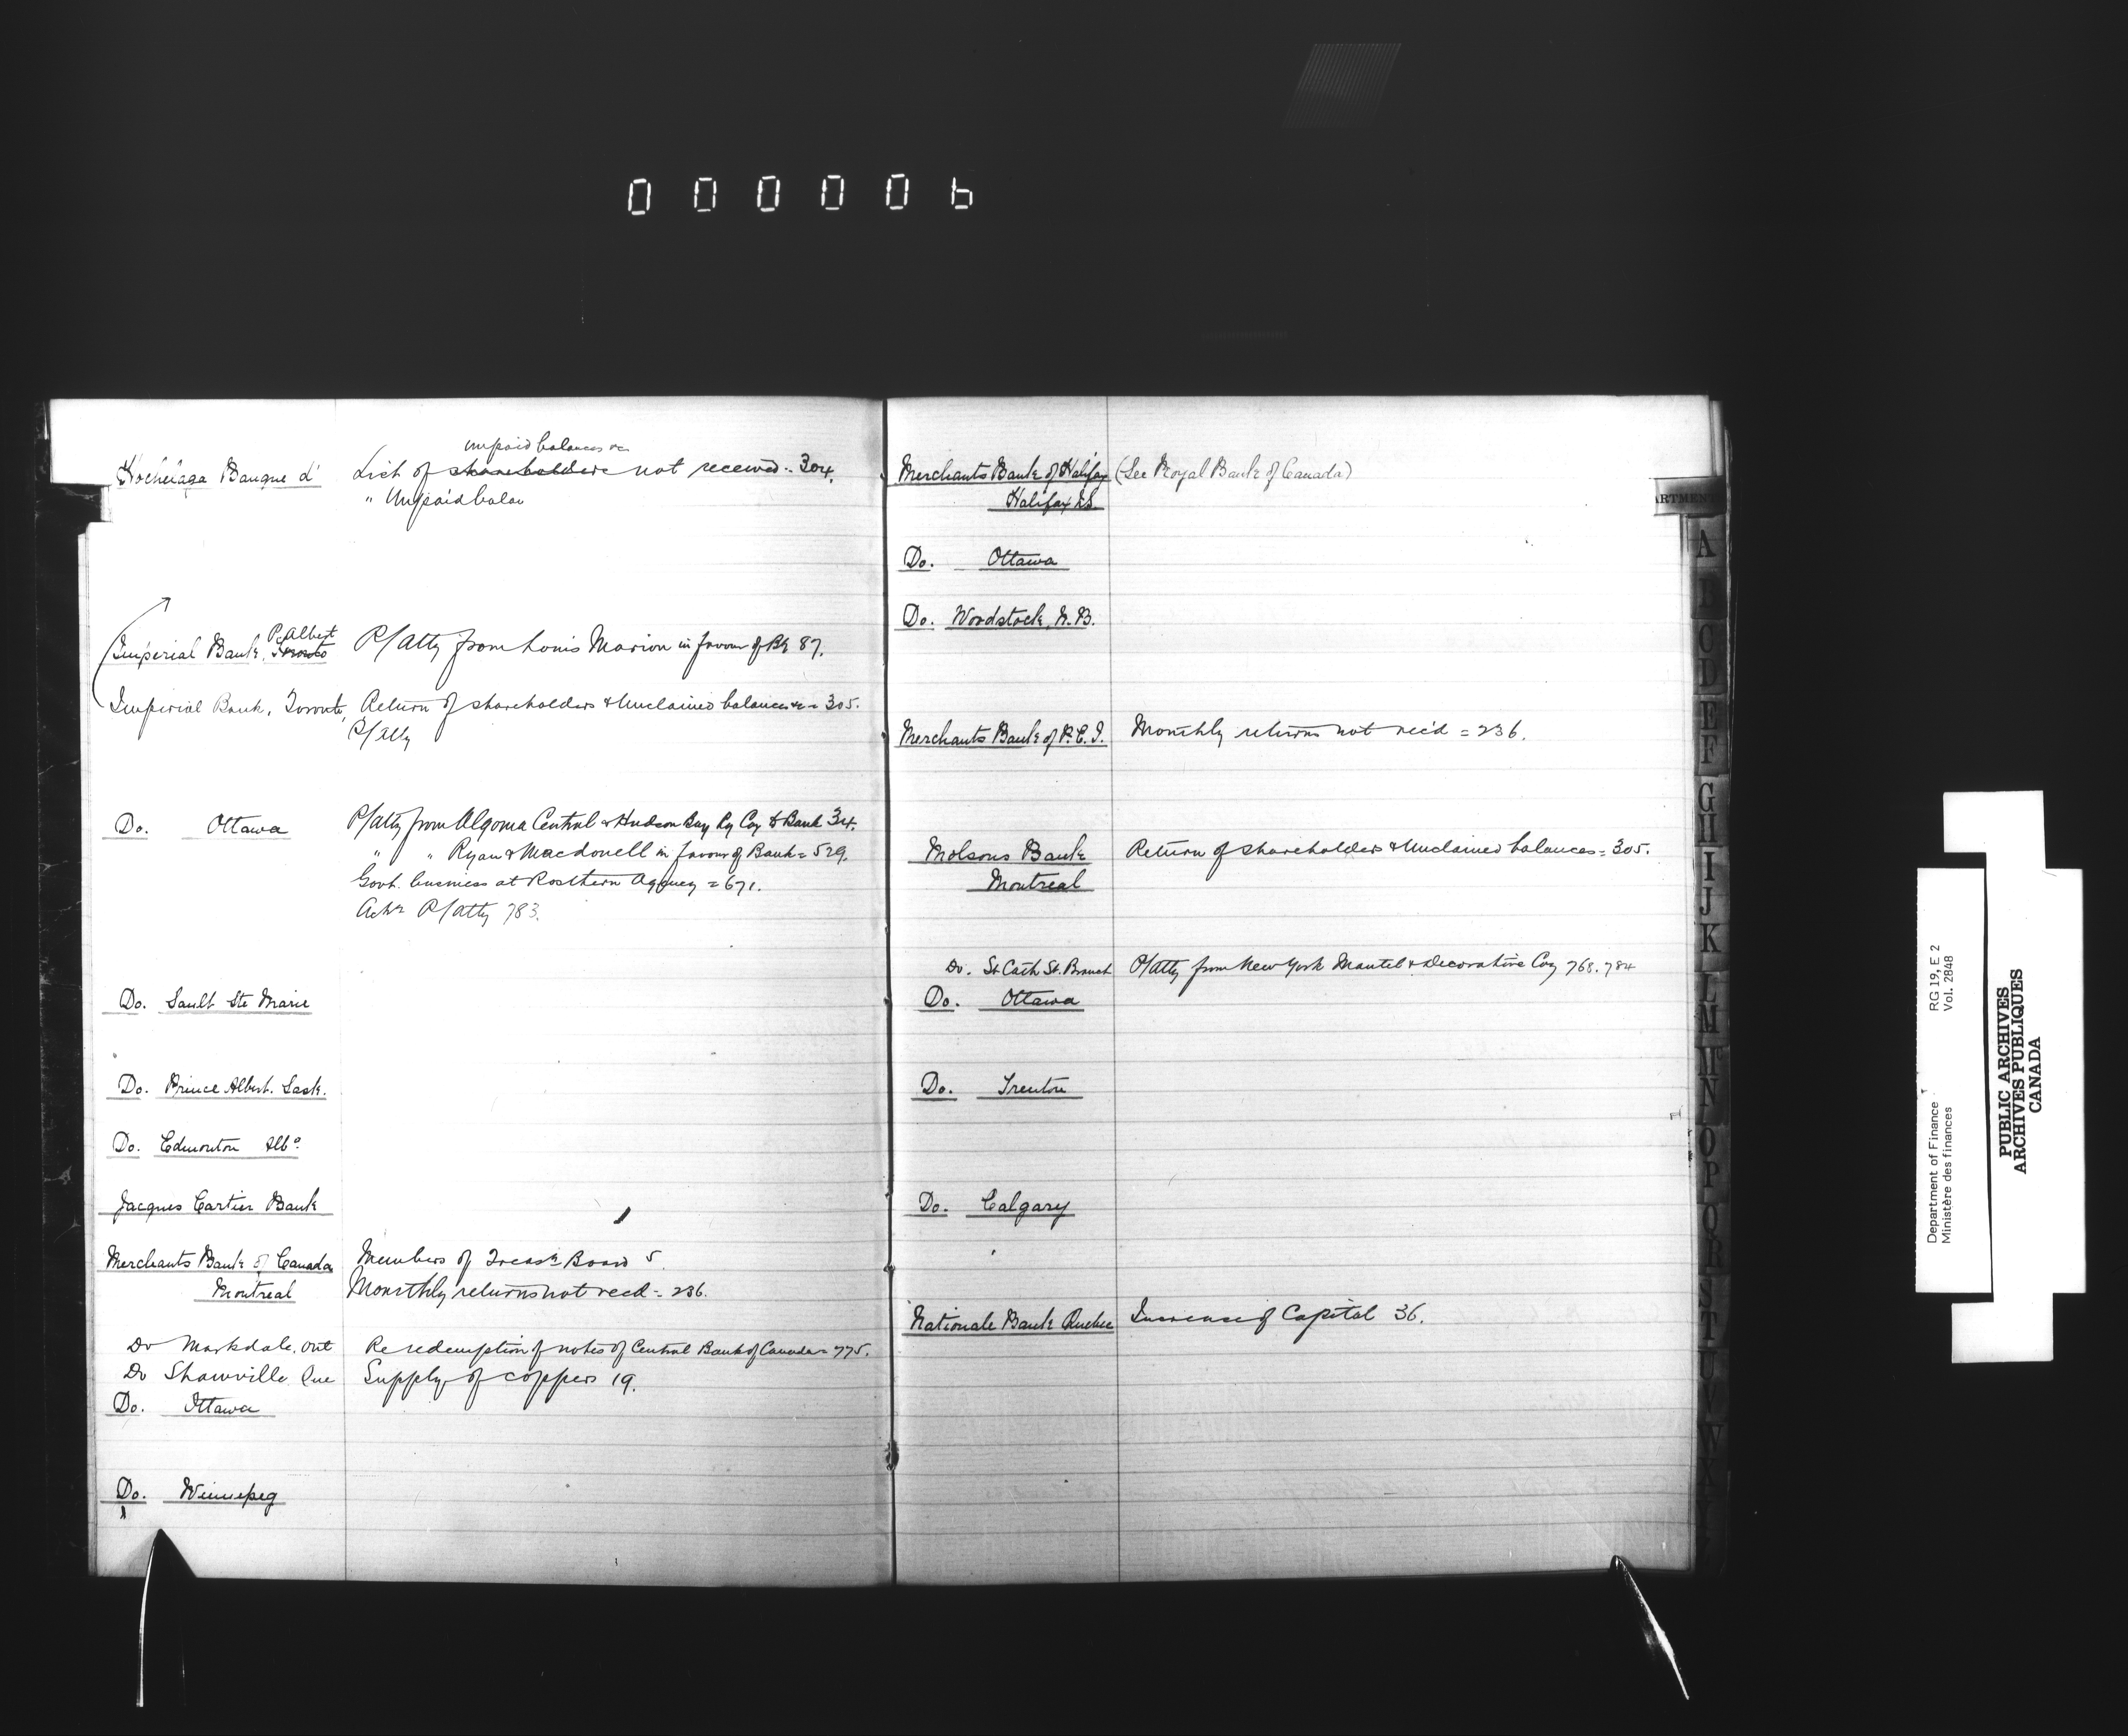 000006
Hochelaga Banque d'
unpaid balances &c
List of shareholders not received = 304.
" Unpaid balan
Imperial Bank, P. Albert Toronto
P/Atty from Louis Marion in favour of Bk 87.
Imperial Bank, Toronto,
Return of shareholders & Unclaimed balances &c = 305.
P/Atty
Do. Ottawa
P/Atty from Algoma Central & Hudson Bay Ry Coy to Bank 34.
" " Ryan & Macdonell in favour of Bank = 529.
Govt. business at Rosthern Agency = 671.
Ackr P/Atty 783.
Do. Sault Ste Marie
Do. Prince Albert. Sask.
Do. Edmonton Alba
Jacques Cartier Bank
Merchants Bank of Canada
Montreal
Members of Treasy Board 5.
Monthly returns not recd = 236.
Do Markdale, Ont
Re redemption of notes of Central Bank of Canada = 775.
Do Shawville, Que
Supply of coppers 19.
Do. Ottawa
Do. Winnepeg
Merchants Bank of Halifax
Halifax N.S.
(See Royal Bank of Canada)
Do. Ottawa
Do. Woodstock, N.B.
Merchants Bank of P.E.I.
Monthly returns not rec'd = 236.
Molsons Bank
Montreal
Return of shareholders & Unclaimed balances = 305.
Do. St Cath St. Branch
P/Atty from New York Mantel & Decorative Coy 768. 784
Do. Ottawa
Do. Trenton
Do. Calgary
Nationale Bank Quebec
Increase of Capital 36.
ARTMEN
A
C
D
E
F
G
H
I
J
K
L
M
N
O
P
Q
R
S
T
U
V
W
X
Department of Finance RG 19, E 2
Ministère des finances Vol. 2848
PUBLIC ARCHIVES
ARCHIVES PUBLIQUES
CANADA